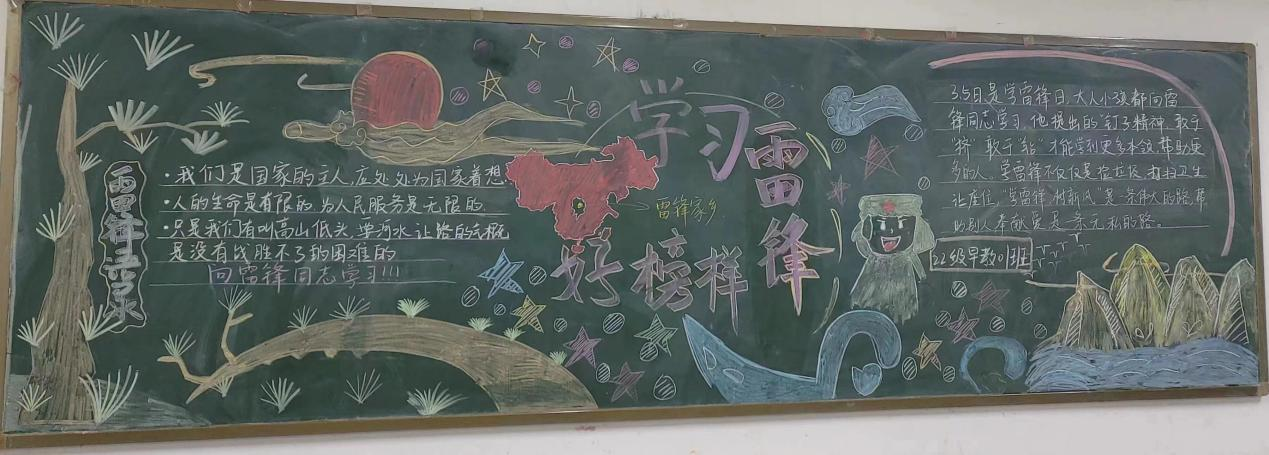 雷锋语录
·我们是国家的主人,应处处为国家着想
·人的生命是有限的 为人民服务是无限的
·只是我们有叫高山低头,要河水让路的气概
是没有战胜不了的困难的
向雷锋同志学习!!!
学习雷锋
好榜样
雷锋家乡
3.5日是学雷锋日,大人小孩都向雷
锋同志学习,他提出的"钉子精神,敢于
"挤"敢于"钻"才能学到更多本领,帮助更
多的人。学雷锋不仅仅是捡垃圾 打扫卫生
让座位,"学雷锋,树新风"是一条伟大的路,帮
助别人奉献爱是一条无私的路。
22级早教01班